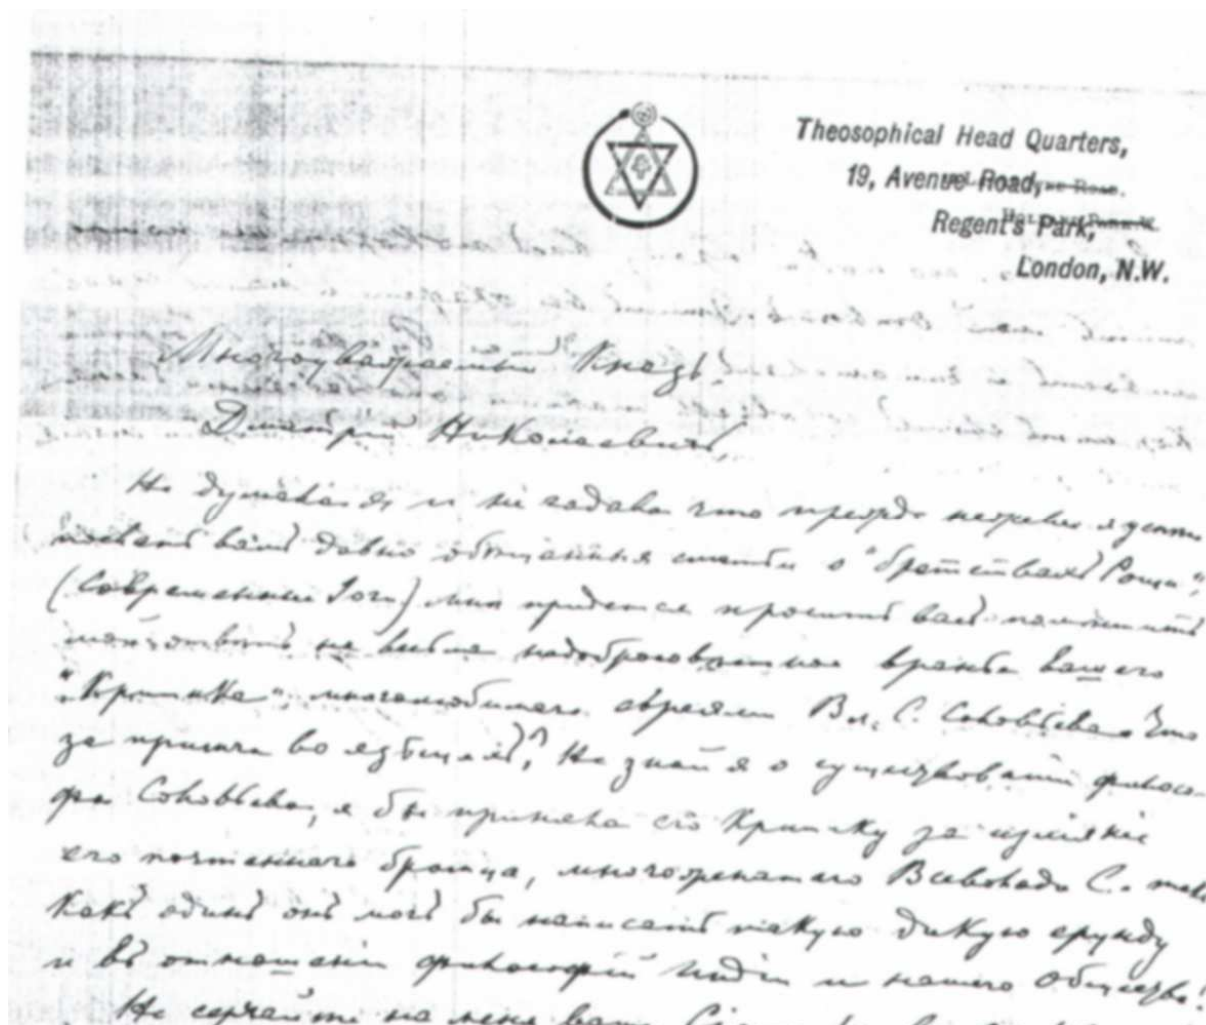 Theosophical Head Quarters,
19, Avenue Road,
Regent's Park,
London, N.W.
Многоуважаемый Князь
Дмитрій Николаевичъ,
Не думала я, и не гадала что прежде нежели я успѣю
вамъ давно обѣщанныя статьи о "братствахъ Рощи",
(современныи Іоги) мнѣ придется просить васъ помѣстить
мой отвѣтъ на весьма недобросовѣстное вранье вашего
"Критика", многолюбимаго евреями Вл. С. Соловьева. Что
за притча во языцѣхъ? Не знай я о существованіи филосо-
фа Соловьева, я бы приняла его критику за изліяніе
его почтеннаго братца, многоженатаго Всеволода С. такъ
какъ одинъ онъ могъ бы написать такую дикую ерунду
и въ отношеніи философіи Индіи и нашего Общества!
Не серчайте на меня ваше